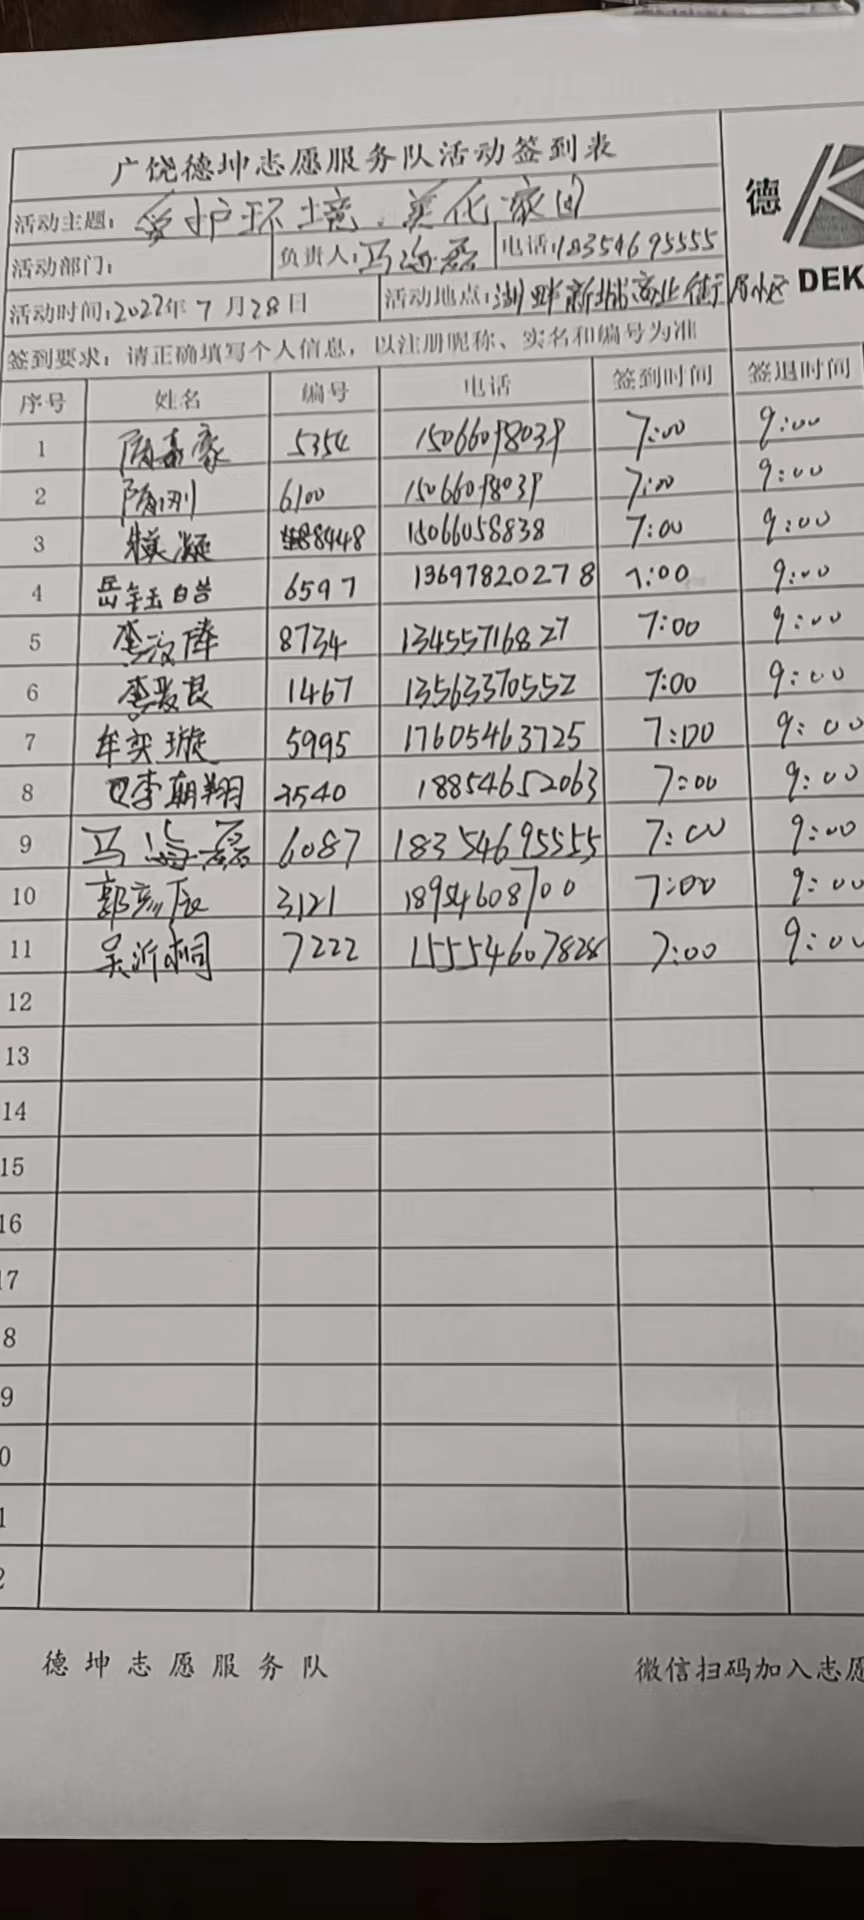 广饶德坤志愿服务队活动签到表
德
活动主题：爱护环境、美化家园
活动部门： 负责人：马海磊 电话：18354695555
DEK
活动时间：2022年7月28日 活动地点：湖畔新城商业街 小区
签到要求：请正确填写个人信息，以注册昵称、实名和编号为准
序号 姓名 编号 电话 签到时间 签退时间
1 隋嘉豪 5354 15066098039 7:00 9:00
2 隋刚 6100 15066098039 7:00 9:00
3 凝 8448 15066058838 7:00 9:00
4 岳钰岩 6597 13697820278 7:00 9:00
5 李汶 8734 13455716827 7:00 9:00
6 李爱良 1467 13563370552 7:00 9:00
7 牟奕璇 5995 17605463725 7:00 9:00
8 李朝翔 3540 18854652063 7:00 9:00
9 马海磊 6087 18354695555 7:00 9:00
10 郭彦辰 3121 18954608700 7:00 9:00
11 吴沂桐 7222 15554607828 7:00 9:00
12
13
14
15
16
17
8
9
0
1
2
德坤志愿服务队 微信扫码加入志愿